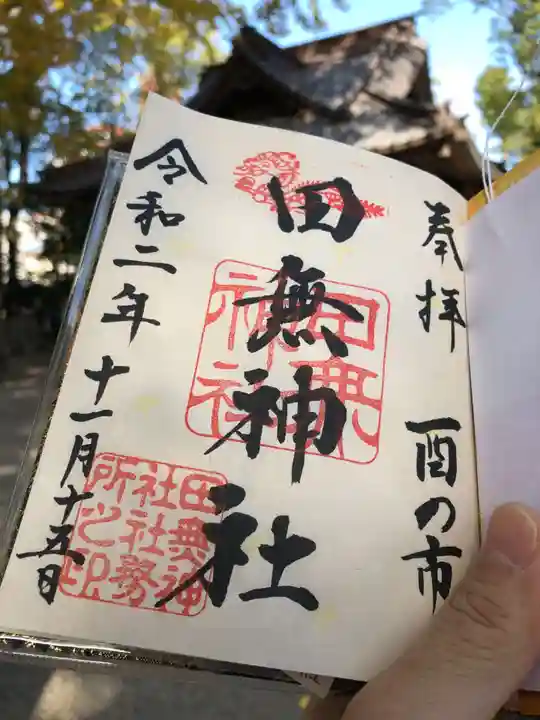 奉拝 酉の市
田無神社
令和二年十一月十五日
田無神社
田無神
社社務
所之印